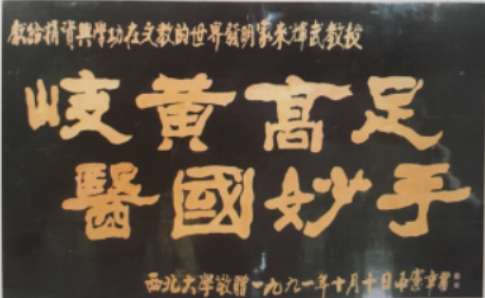 献给捐資興學功在文教的世界發明家来輝武教授
岐黄高足
醫國妙手
西北大學敬贈一九九一年十月十日